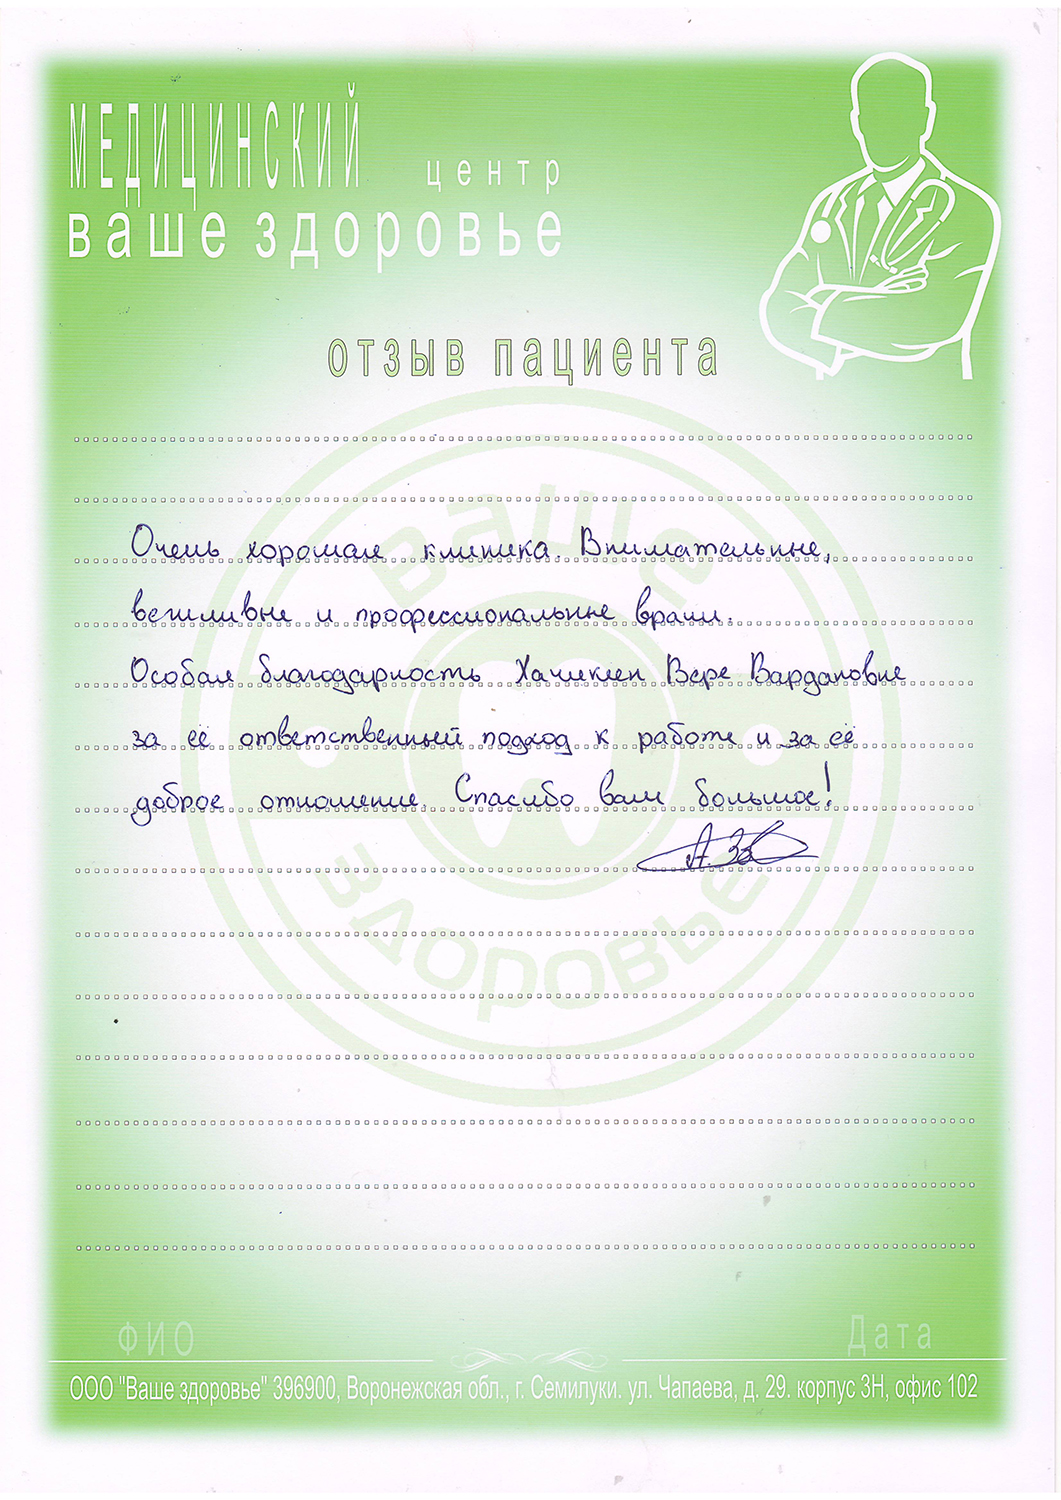 МЕДИЦИНСКИЙ центр
ваше здоровье
отзыв пациента
Очень хорошая клиника. Внимательные,
вежливые и профессиональные врачи.
Особая благодарность Хачикян Вере Вардановне
за её ответственный подход к работе и за её
доброе отношение. Спасибо вам большое!
ВАШЕ
ЗДОРОВЬЕ
ФИО Дата
ООО "Ваше здоровье" 396900, Воронежская обл., г. Семилуки. ул. Чапаева, д. 29. корпус 3Н, офис 102